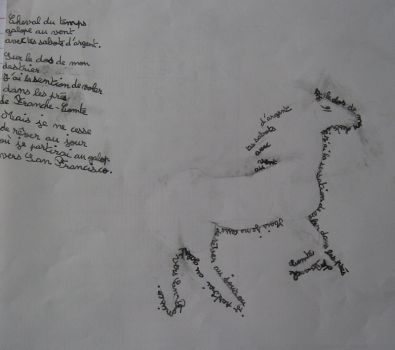 Cheval du temps
galope au vent
avec tes sabots d'argent.
Sur le dos de mon
destrier
j'ai la sensation de voler
dans les prés
de Franche-Comté
Mais je ne cesse
de rêver au jour
où je partirai au galop
vers San Francisco.
tes sabots d'argent
avec
au vent
le dos de mon
j'ai la sensation
voler dans les prés
Mais je ne cesse
de rêver au jour où
je partirai
au galop
vers San Francisco.